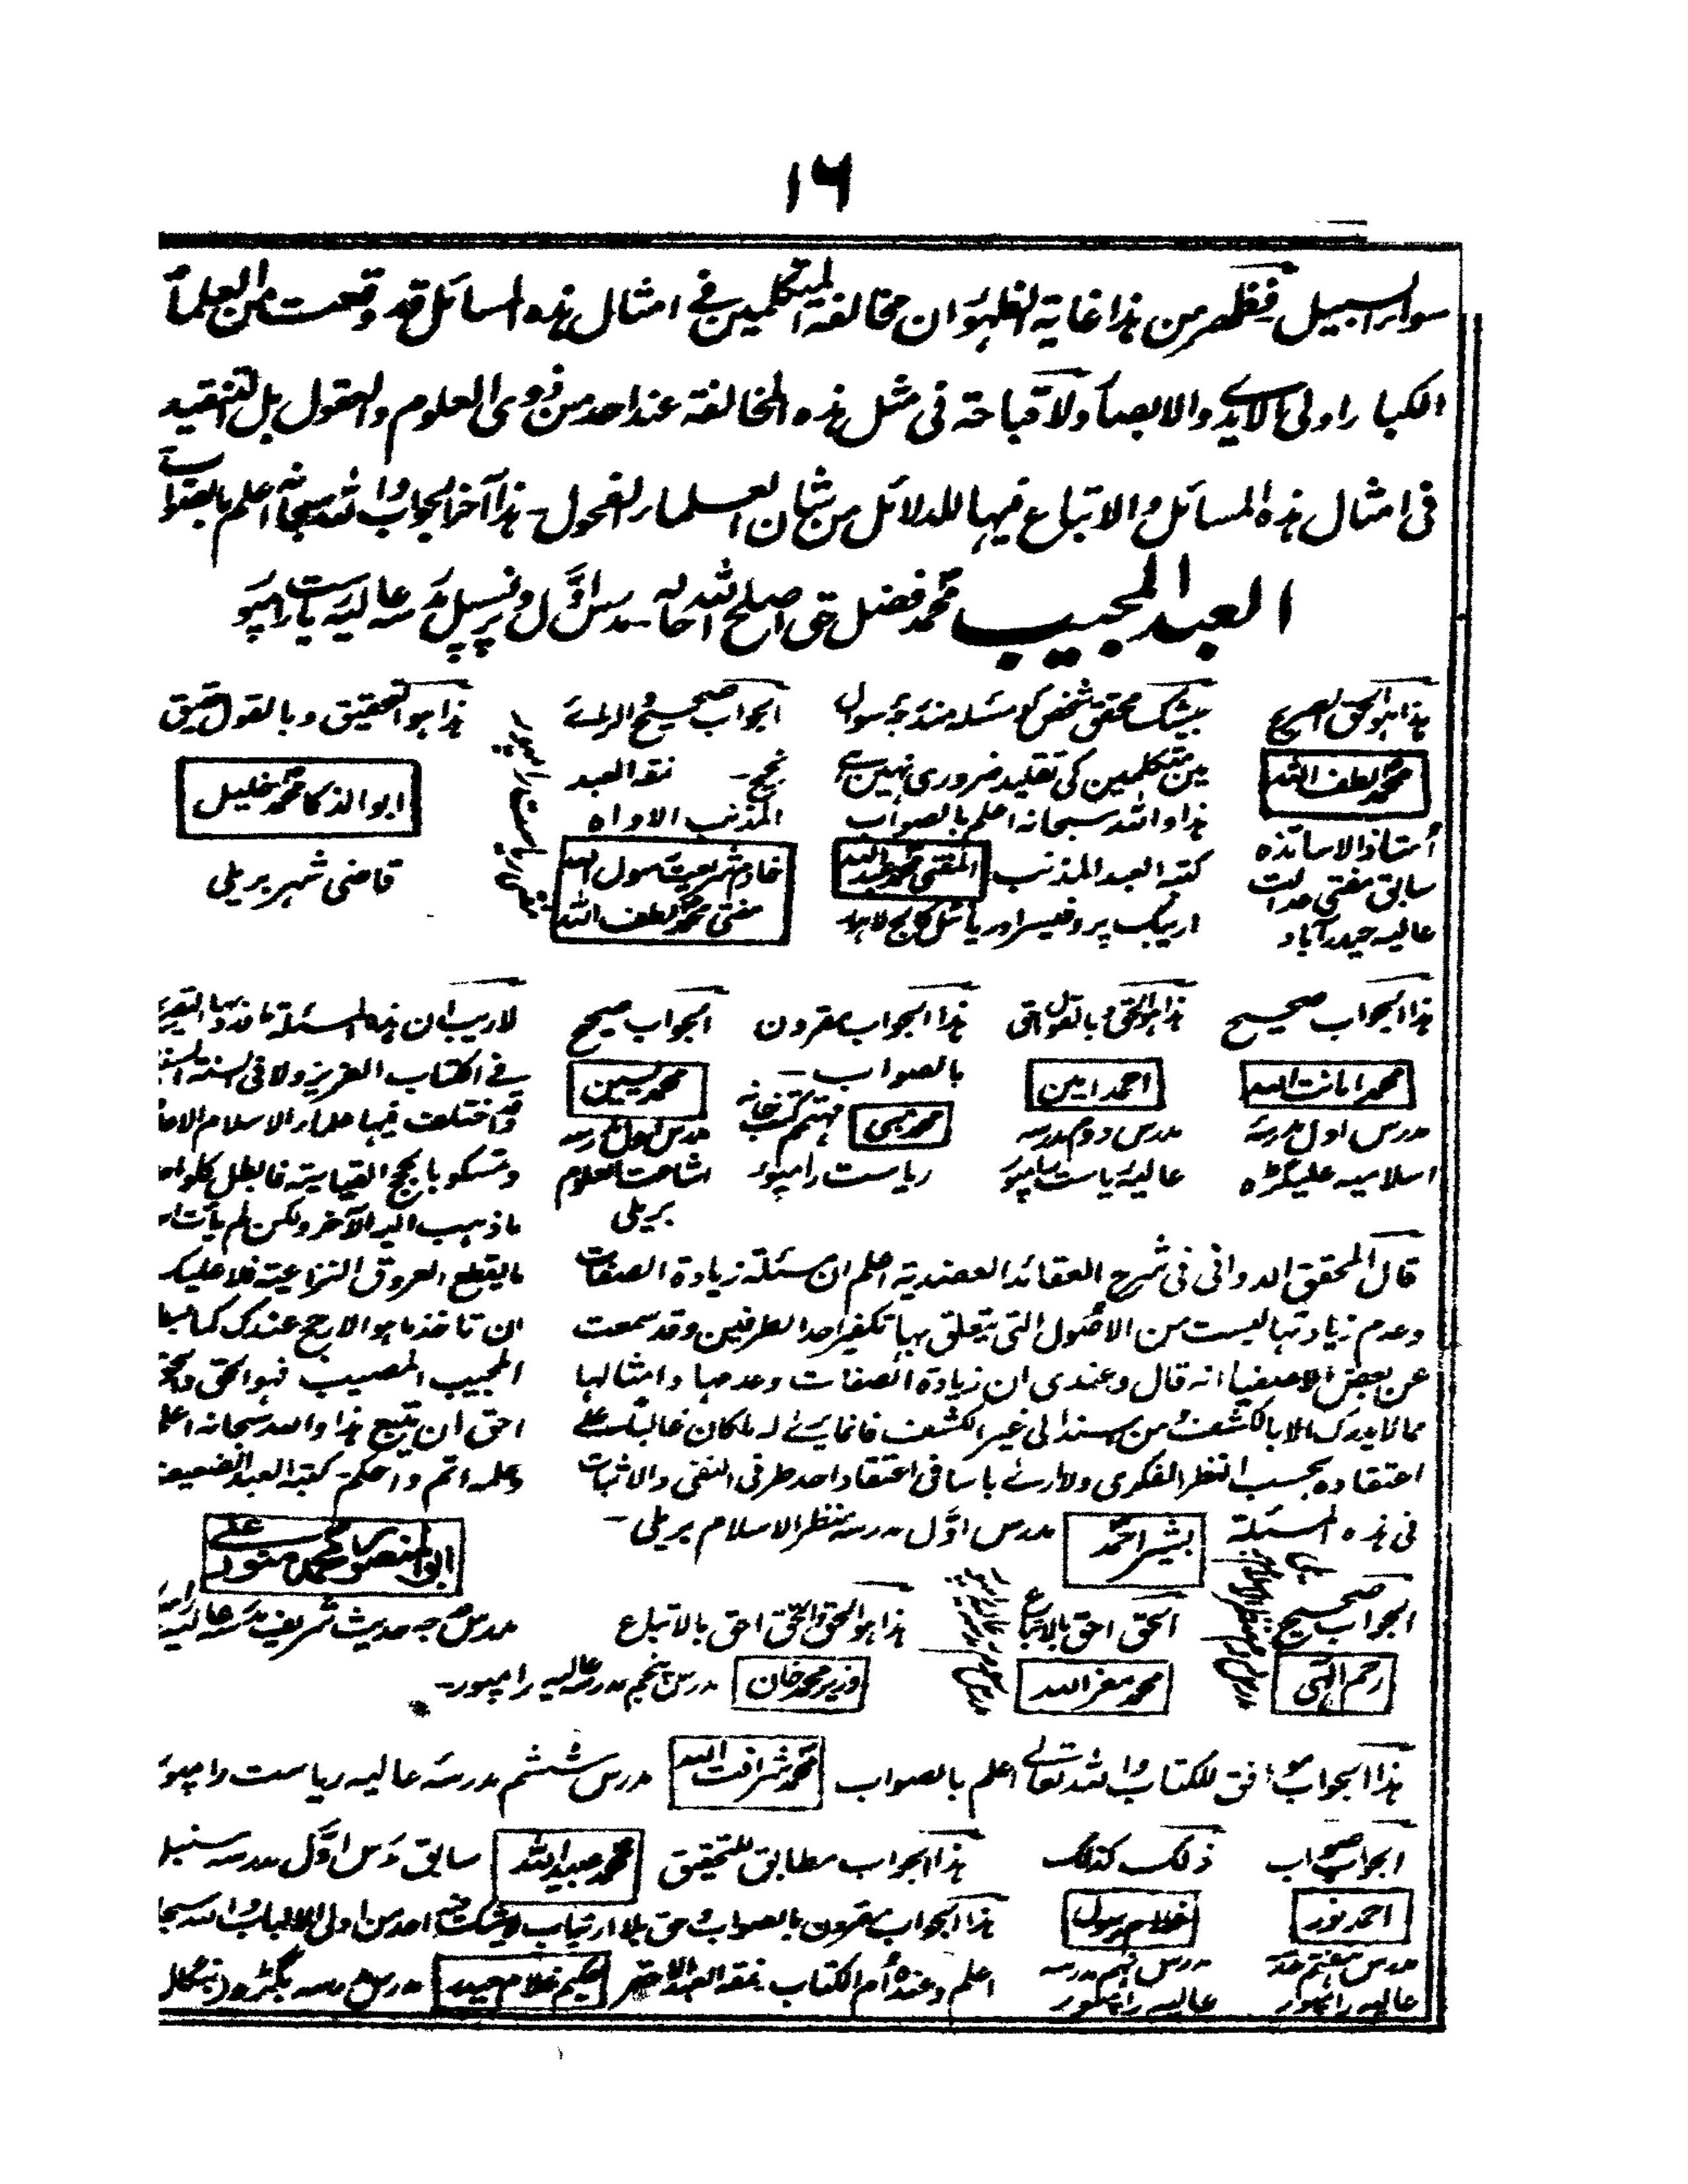 ۱۶
سواء السبیل فظهر من هذا غایة الظهور ان مخالفة المتکلمین فی امثال هذه المسائل قد وقعت من العلماء
الکبار اولی الایدی والابصار ولا قباحة فی مثل هذه المخالفة عند احد من ذوی العلوم والعقول بل التنقید
فی امثال هذه المسائل والاتباع فیها للدلائل من شان العلماء الفحول۔ هذا آخر الجواب والله سبحانه اعلم بالصواب
العبد المجیب محمد فضل حق اصلح الله حاله۔ مدرس اوّل و پرنسپل مدرسه عالیه ریاست رامپور
هذا هو الحق الصریح
محمد لطف الله
اُستاذ الاساتذه
سابق مفتی عدالت
عالیه حیدرآباد
بیشک محقق شخص کو مسئله مندرجۂ سوال
مین متکلمین کی تقلید ضروری نهین ہے
هذا والله سبحانه اعلم بالصواب
کتبه العبد المذنب المفتی محمد عبد الله
اریبک پروفیسر اورینٹل کالج لاہور
الجواب صحیح والرائے
نجیح۔ نمقه العبد
المذنب الاواه
خادم شریعت رسول الله
مفتی محمد لطف الله
هذا هو التحقیق وبالقول حقیق
ابو الذکا محمد خلیل
قاضی شہر بریلی
هذا الجواب صحیح
محمد امانت الله
مدرس اول مدرسہ
اسلامیہ علیگڑہ
هذا هو الحق وبالقبول احق
احمد امین
مدرس دوم مدرسہ
عالیہ ریاست رامپور
هذا الجواب مقرون
بالصواب۔
مہتمم کتب خانہ
ریاست رامپور
الجواب صحیح
محمد یسین
مدرس اول مدرسہ
اشاعت العلوم
بریلی
لا ریب ان هذه المسئلة
فی الکتاب العزیز ولا فی السنة
وقد اختلف فیها علماء الاسلام
وتمسکو بالحجج القیاسیة فابطل کل واحد
ما ذهب الیه الآخر ولکن لم یأت
ما یقلع العروق النزاعیة فلا علیک
ان تاخذ ما هو الارجح عندک کما
المجیب المصیب فهو الحق والحق
احق ان یتبع هذا والله سبحانه اعلم
وعلمه اتم واحکم کتبه العبد الضعیف
ابو المنصور محمد منور علی
مدرس درجہ حدیث شریف مدرسہ عالیہ
قال المحقق الدوانی فی شرح العقائد العضدیة اعلم ان مسئلة زیادة الصفات
وعدم زیادتها لیست من الاصول التی یتعلق بها تکفیر احد الطرفین وقد سمعت
عن بعض الاصفیاء انه قال وعندی ان زیادة الصفات وعدمها وامثالها
مما لا یدرک الا بالکشف ومن اسند الی غیر الکشف فانما یترائے له ما کان غالباً علے
اعتقاده بحسب النظر الفکری ولا ارے باسا فی اعتقاد احد طرفی النفی والاثبات
فی هذه المسئلة بشیر احمد مدرس اوّل مدرسہ منظر الاسلام بریلی۔
الجواب صحیح
رحم الٰہی
الحق احق بالاتباع
محمد معز الله
هذا هو الحق والحق احق بالاتباع
وزیر محمد خان مدرس پنجم مدرسہ عالیہ رامپور۔
هذا الجواب موافق للکتاب والله تعالے اعلم بالصواب محمد شرافت الله مدرس ششم مدرسہ عالیہ ریاست رامپور
الجواب صواب
احمد نور
مدرس ہفتم مدرسہ
عالیہ رامپور
ذلک کذلک
غلام رسول
مدرس نہم مدرسہ
عالیہ رامپور
هذا الجواب مطابق للتحقیق محمد عبید الله سابق مدرس اوّل مدرسہ
هذا الجواب مقرون بالصواب وحق بلا ارتیاب لا یشک فیہ احد من اولی الالباب والله
اعلم وعنده ام الکتاب نمقه العبد الاحقر حکیم غلام حیدر مدرس مدرسہ